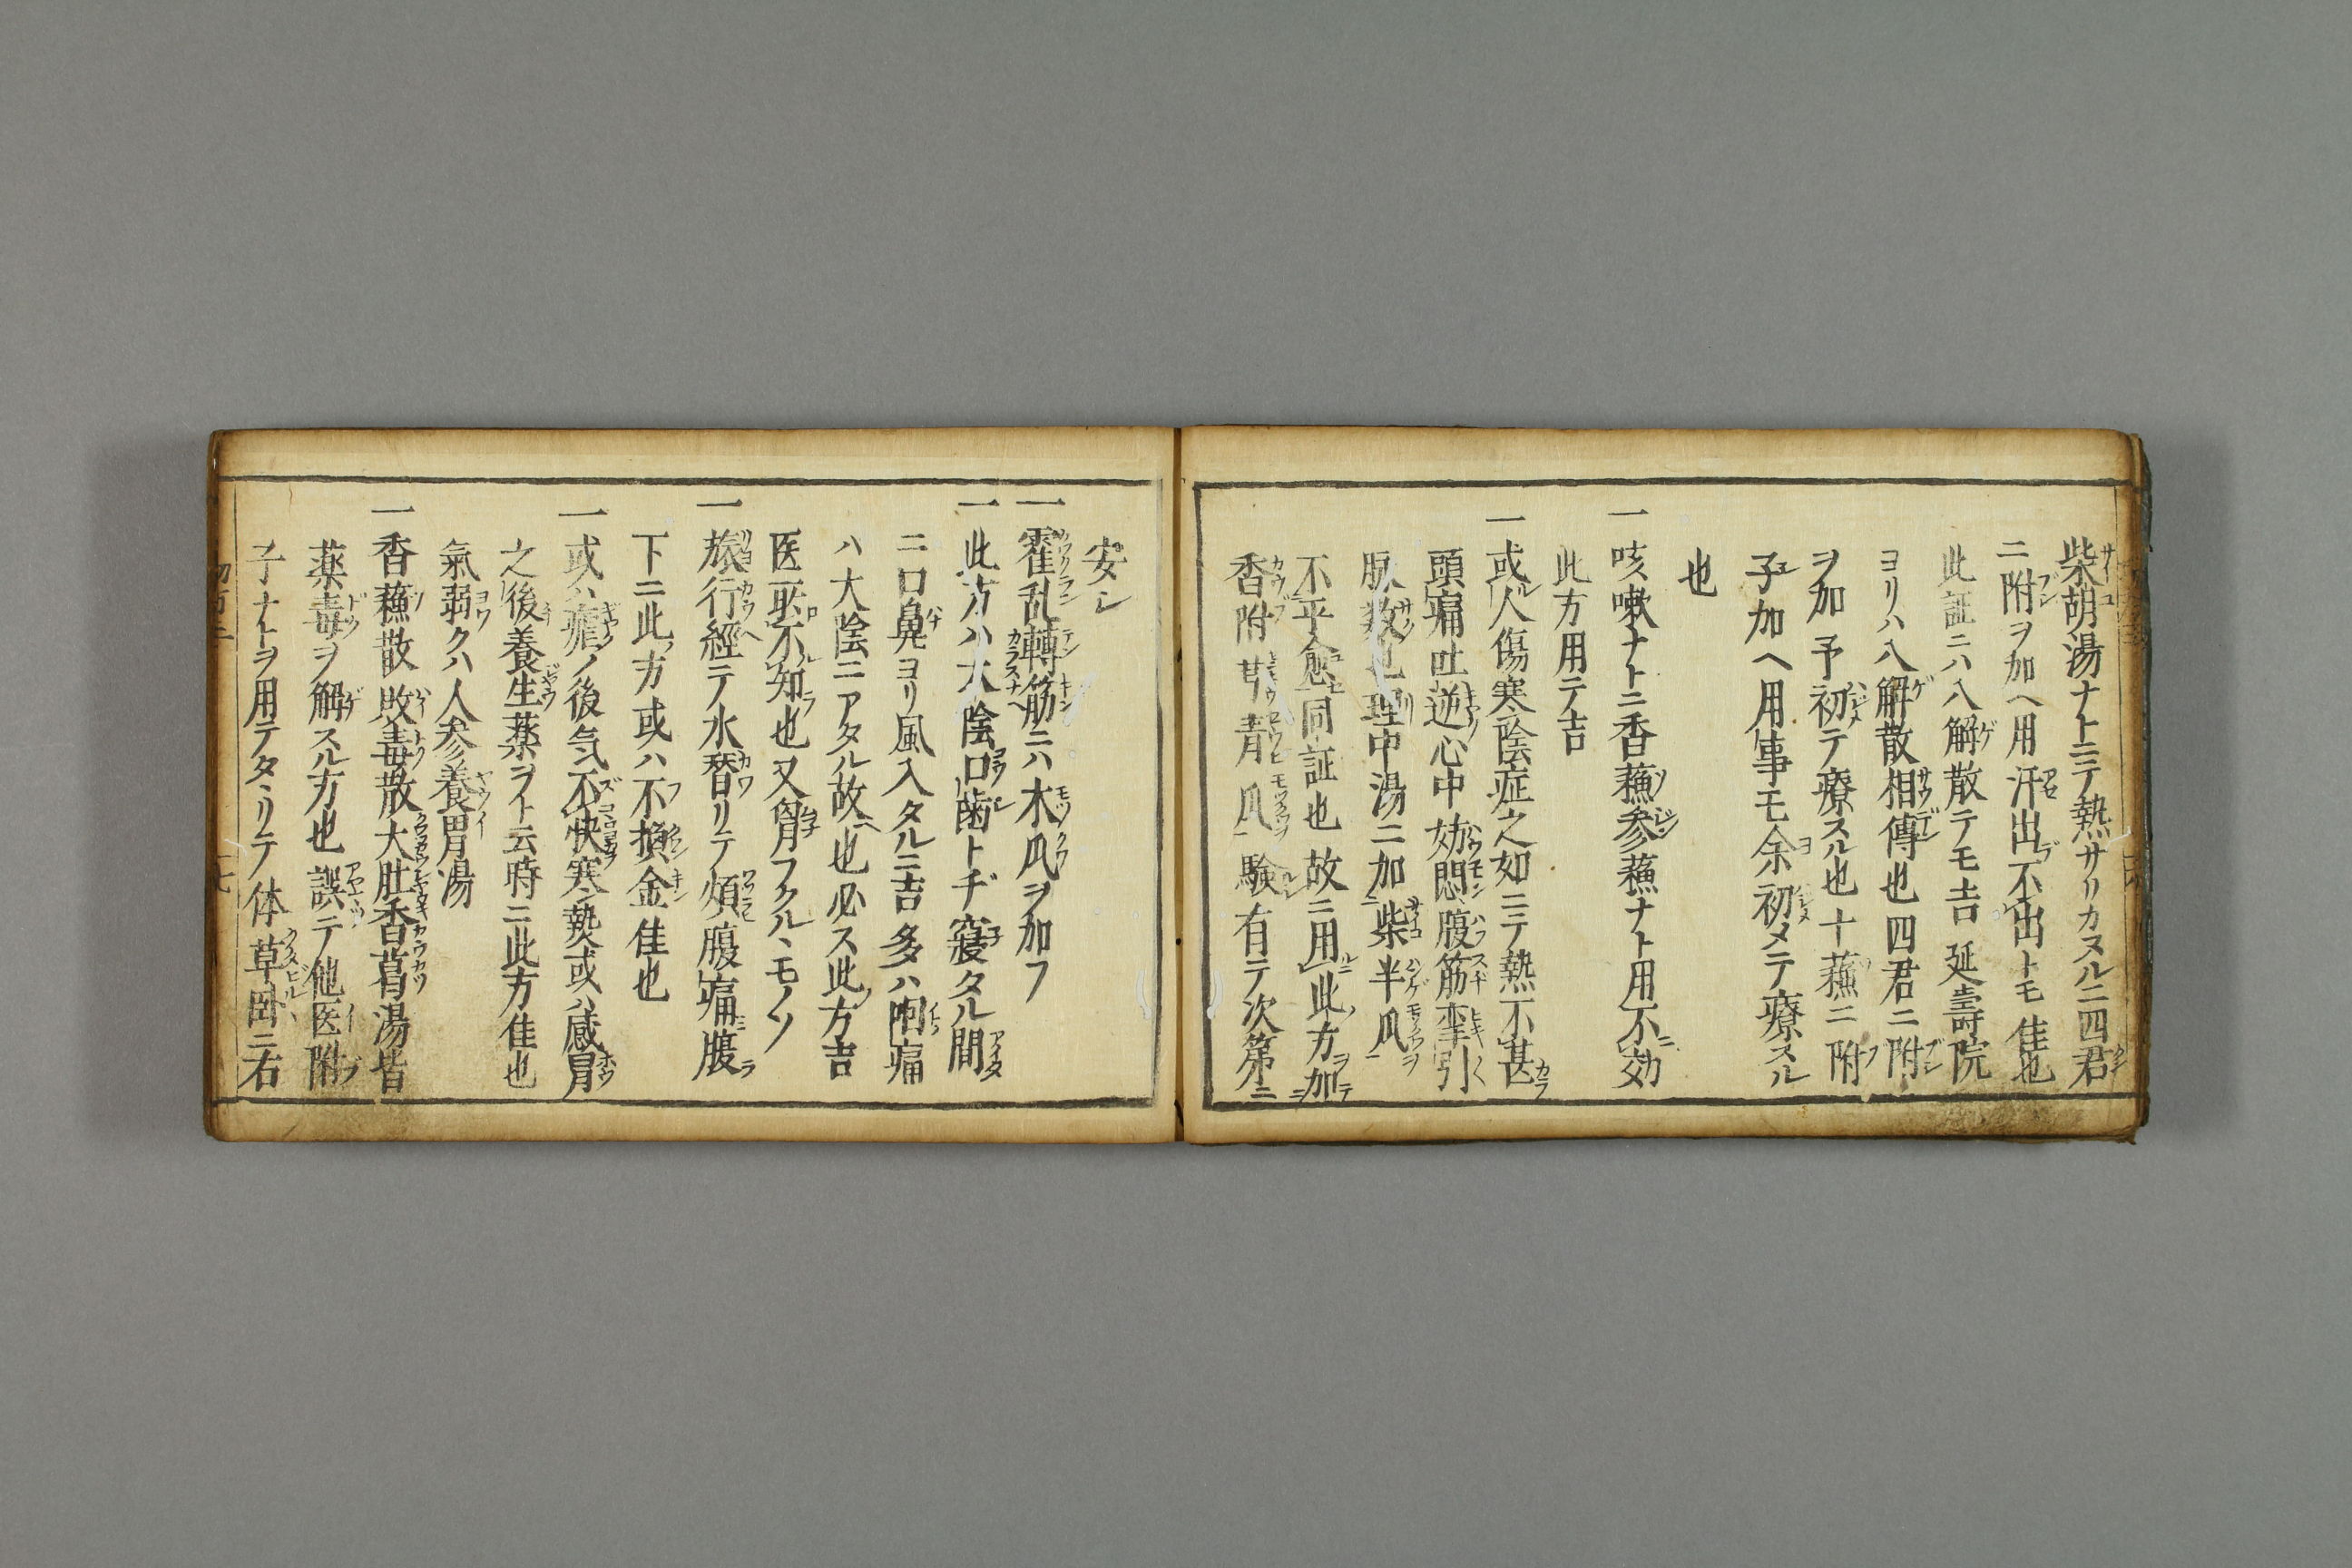 柴胡湯ナトニテ熱サリカヌルニ四君
ニ附ヲ加ヘ用汗出不出トモ佳也
此証ニハ八解散テモ吉延壽院
ヨリハ八解散相傳也四君ニ附
ヲ加予初テ療スル也十蘓ニ附
子加ヘ用事モ余初メテ療スル
也
一咳嗽ナトニ香蘓参蘓ナト用不効
此方用テ吉
一或人傷寒陰症之如ニテ熱不甚
頭痛吐逆心中妨悶腹筋牽引
脉数也理中湯ニ加柴半瓜
不平愈同証也故ニ用此方加
香附青瓜験有テ次第ニ
安シ
一霍乱轉筋ニハ木瓜ヲ加フ
一此方ハ大陰口歯トヂ寝タル間
ニ口鼻ヨリ風入タルニ吉多ハ咽痛
ハ大陰ニアタル故也必ス此方吉
医不知也又胷フクルヽモノソ
一旅行經テ水替リテ煩腹痛腹
下ニ此方或ハ不換金佳也
一或ハ瘧ノ後気不快寒熱或ハ感冒
之後養生薬ヲト云時ニ此方佳也
氣弱クハ人参養胃湯
一香蘓散敗毒散大肚香葛湯皆
薬毒ヲ解スル方也誤テ他医附
子ナトヲ用テタヽリテ体草卧ニ右